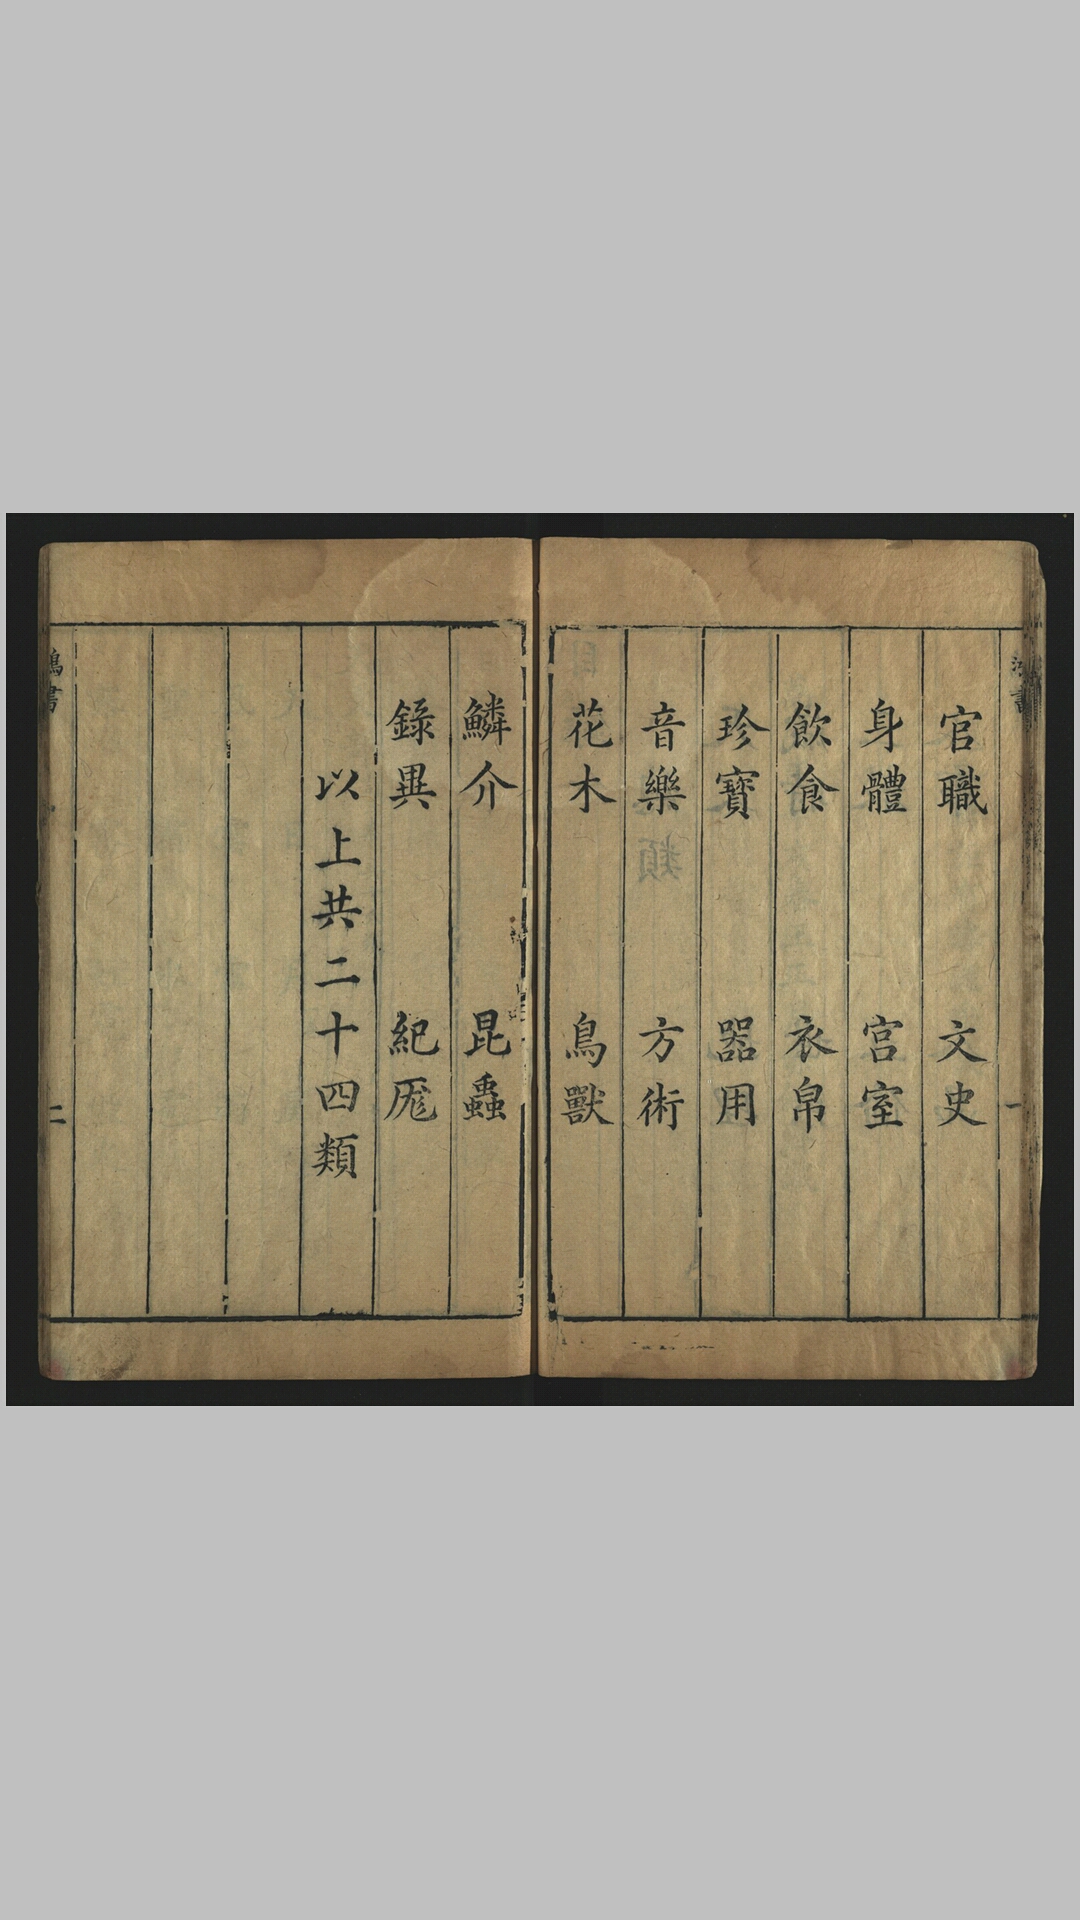 官職 文史
身體 宮室
飲食 衣帛
珍寶 器用
音樂 方術
花木 鳥獸
鱗介 昆蟲
錄異 紀厖
以上共二十四類
鴻書
二
一